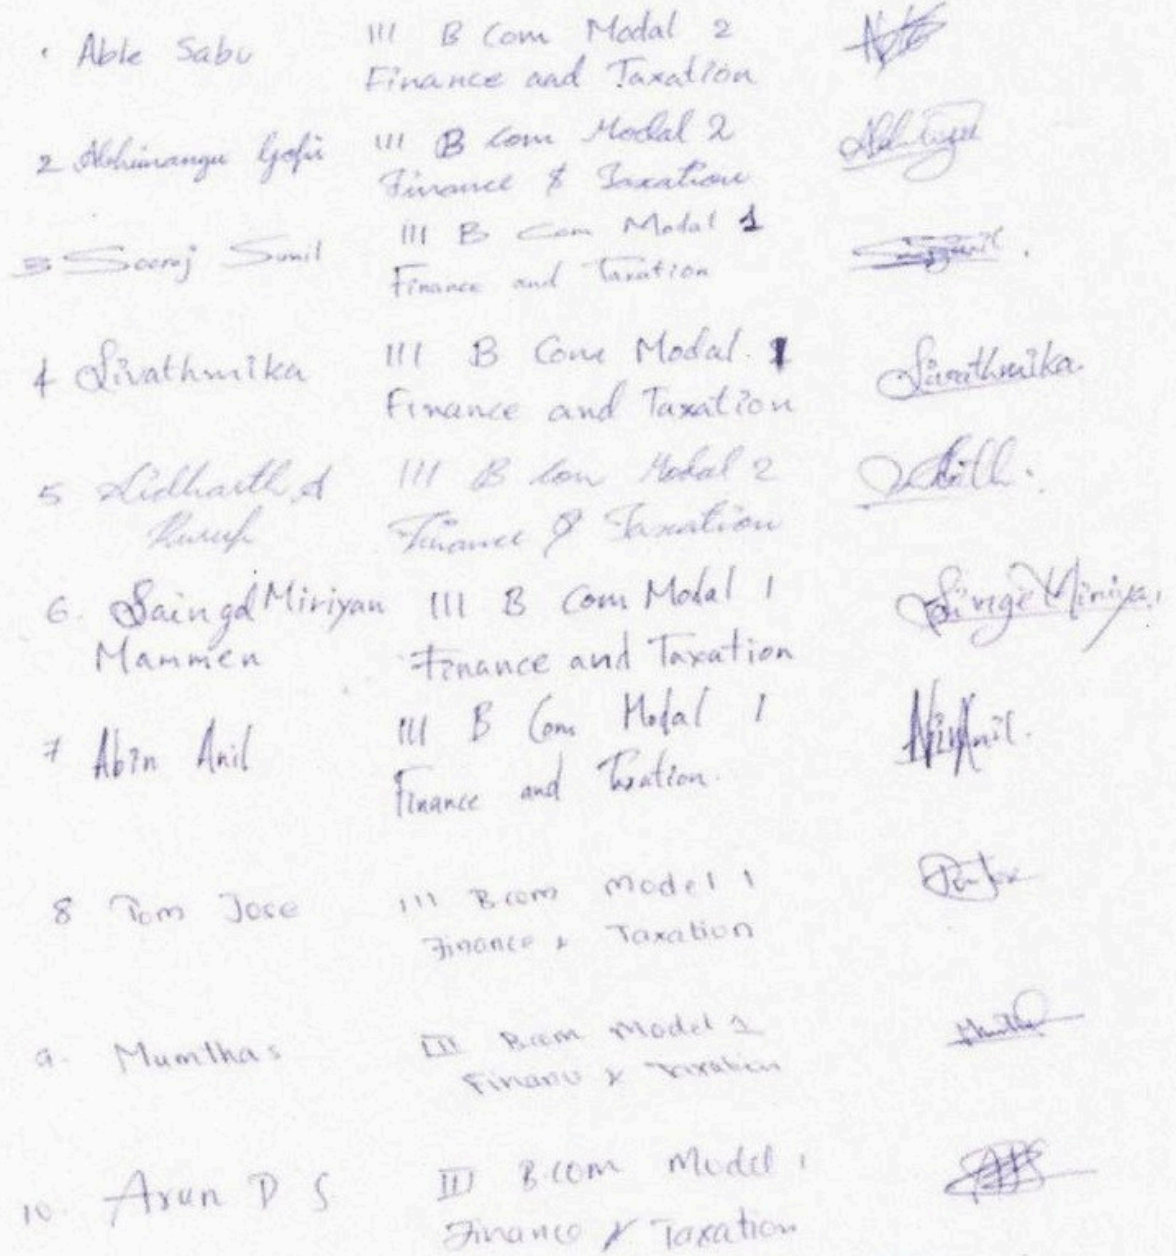 1 Able Sabu III B Com Modal 2
Finance and Taxation
2 Abhimanyu Gopi III B Com Modal 2
Finance & Taxation
3 Sooraj Sunil III B Com Modal 1
Finance and Taxation
4 Sivathmika III B Com Modal 1 Sivathmika
Finance and Taxation
5 Sidharth A III B Com Modal 2
Finance & Taxation
6. Miriyan III B Com Modal 1
Mammen Finance and Taxation
7 Abin Anil III B Com Modal 1
Finance and Taxation.
8 Tom Jose III B com Model 1
Finance & Taxation
9. Mumthas III Bcom Model 1
Finance & Taxation
10. Arun P S III Bcom Model 1
Finance & Taxation